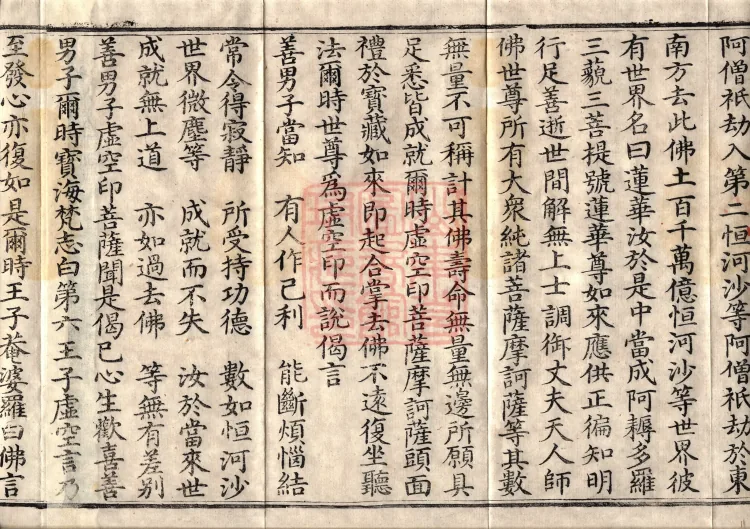 阿僧祇劫入第二恒河沙等阿僧祇劫於東
南方去此佛土百千萬億恒河沙等世界彼
有世界名曰蓮華汝於是中當成阿耨多羅
三藐三菩提號蓮華尊如來應供正徧知明
行足善逝世間解無上士調御丈夫天人師
佛世尊所有大衆純諸菩薩摩訶薩等其數
無量不可稱計其佛壽命無量無邊所願具
足悉皆成就爾時虛空印菩薩摩訶薩頭面
禮於寶藏如來即起合掌去佛不遠復坐聽
法爾時世尊爲虛空印而說偈言
善男子當知　有人作己利　能斷煩惱結
常令得寂靜　所受持功德　數如恒河沙
世界微塵等　成就而不失　汝於當來世
成就無上道　亦如過去佛　等無有差別
善男子虛空印菩薩聞是偈已心生歡喜善
男子爾時寶海梵志白第六王子虛空言乃
至發心亦復如是爾時王子菴婆羅白佛言